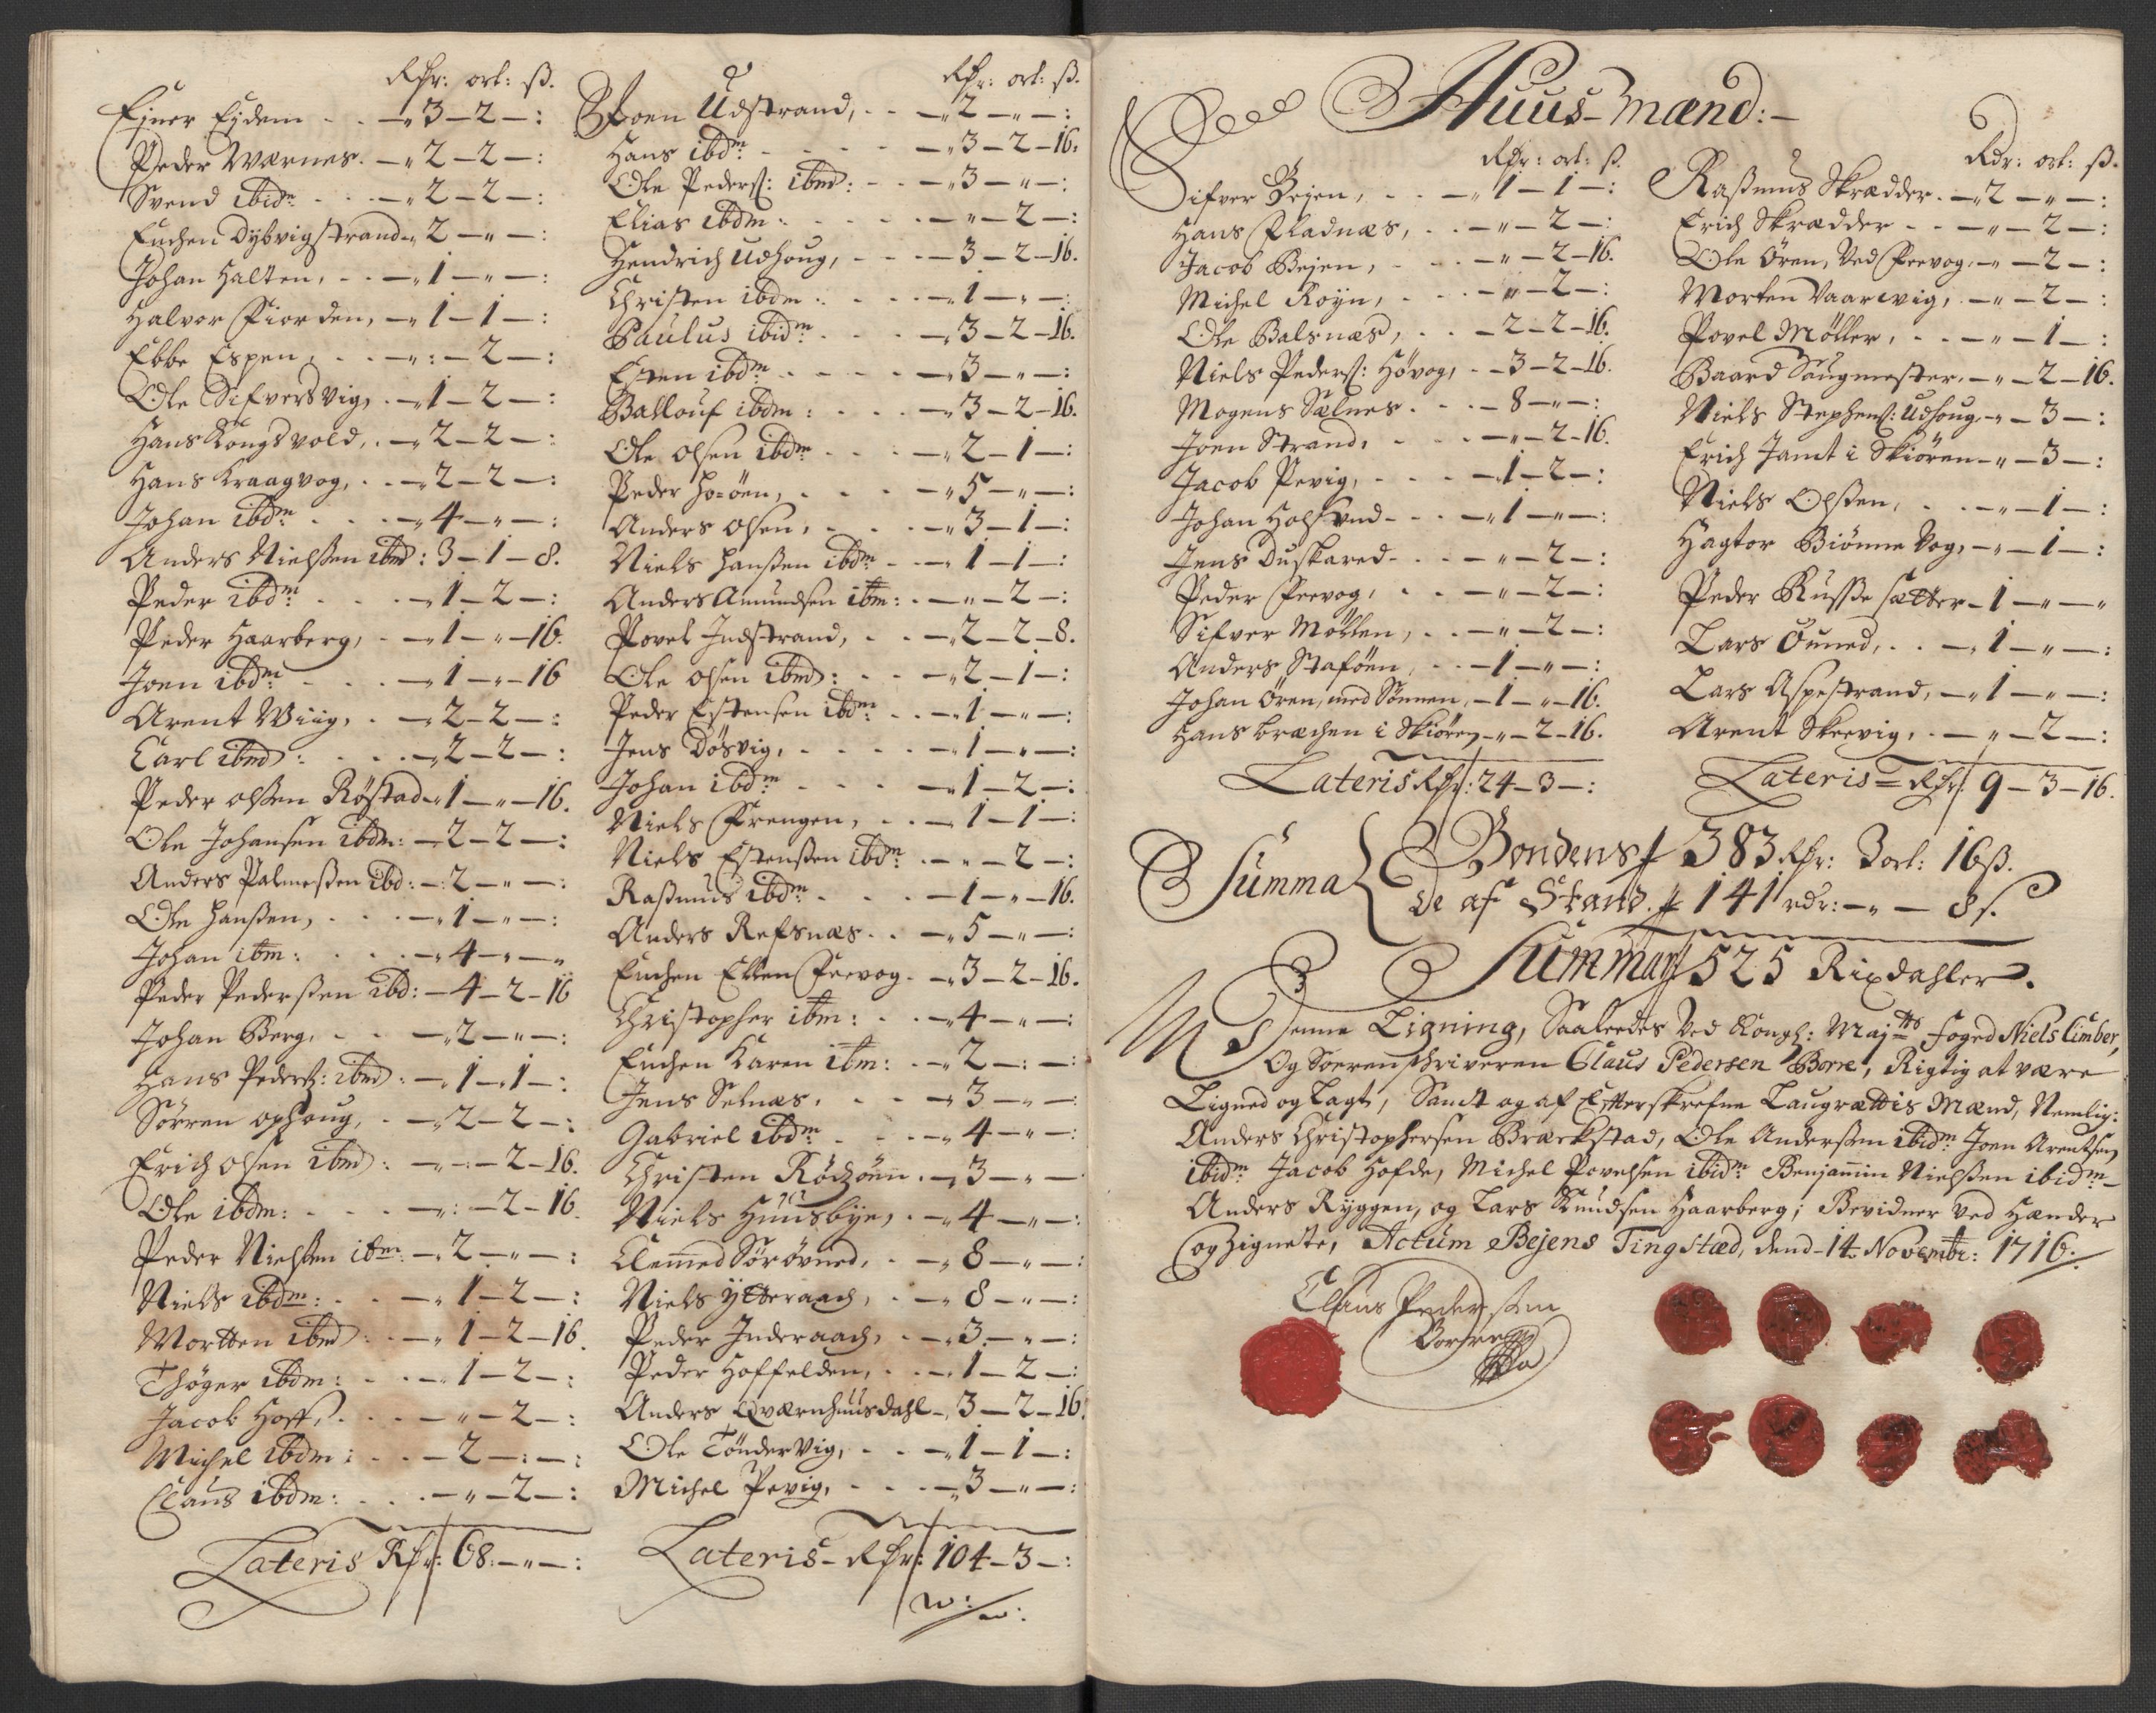 Rdr: ort: ß.
Ejner Ejdem - - 3 - 2 - :
Peder Wærnes. - 2 - 2 - :
Svend ibidm - - 2 - 2 - :
Enchen Dybvigstrand - 2 - " - :
Johan Halten, - - 1 - " - :
Halvor Fiorden, - 1 - 1 - :
Ebbe Espen, - - " : - 2 - :
Ole Sifversvig, - 1 - 2 - :
Hans Kongsvold, - 2 - 2 - :
Hans Kraagvog, - - 2 - 2 - :
Johan ibdm - - 4 - " - :
Anders Nielssen ibmd: 3 - 1 - 8.
Peder ibdm - - 1 - 2 - :
Peder Haarberg, - 1 - " - 16.
Joen ibdm - - 1 - " - 16
Arent Wiig, - 2 - 2 - :
Carl ibmd: - - 2 - 2 - :
Peder olssen Röstad - 1 - " - 16.
Ole Johansen ibdm: - 2 - 2 - :
Anders Palmessen ibd: - 2 - " - :
Ole Hanssen, - - 1 - " - :
Johan ibm: - - 4 - " - "
Peder Pederssen ibd: - 4 - 2 - 16
Johan Berg, - - 2 - " - :
Hans Peders: ibmd: - 1 - 1 - :
Sörren ophoug, - 2 - 2 - :
Erich olsen ibmd: - " - 2 - 16.
Ole ibdm: - - " : - 2 - 16.
Peder Nielssen ibm: - 2 - " - :
Niels ibdm: - - 1 - 2 - :
Mortten ibmd: - 1 - 2 - 16.
Thöger ibdm: - - 1 - 2 - :
Jacob Hoff, - - " - 2 - :
Michel ibdm: - - 2 - : - :
Claus ibdm: - - " - 2 - :
Lateris Rdr: 68. - " - :
Rdr: ort: ß.
Joen Udstrand, - - 2 - " - :
Hans ibdm: - - 3 - 2 - 16.
Ole Peders: ibmd: - - 3 - " - :
Elias ibdm: - - " - 2 - :
Hendrich Udhoug, - - 3 - 2 - 16.
Christen ibdm: - - 1 - " - :
Paulus ibidm - - 3 - 2 - 16.
Esten ibdm - - 3 - " - :
Ballouf ibdm: - - 3 - 2 - 16.
Ole olsen ibdm - - 2 - 1 - :
Peder Ho=öen, - - 5 - " - :
Anders olsen, - - 3 - 1 - :
Niels Hanssen ibdm - - 1 - 1 - :
Anders Amundsen ibm: - " - 2 - :
Povel Indstrand, - - 2 - 2 - 8.
Ole olsen ibmd: - - 2 - 1 - :
Peder Estensen ibdm - - 1 - " - :
Jens Dösvig, - - 1 - " - :
Johan ibdm - - 1 - 2 - :
Niels Frengen, - - 1 - 1 - :
Niels Estenssen ibdm: - " - 2 - :
Rasmus ibdm - - 1 - " - 16.
Anders Refsnæs. - - 5 - " - :
Enchen Ellen Feevog. - 3 - 2 - 16.
Christopher ibm: - - 4 - " - :
Enchen Karen ibm: - 2 - : - :
Jens Selnæs. - - 3 - " - :
Gabriel ibdm - - 4 - " - :
Christen Rödzöen. - 3 - " -
Niels Huusbÿe, - 4 - " - :
Clemmed Sörövned, - 8 - " - :
Niels Ytteraach, - 8 - " - :
Peder Inderaach, - 3 - " - :
Peder Hoffelden, - - 1 - 2 - :
Anders Qværnhuusdahl - 3 - 2 - 16.
Ole Töndervig, - - 1 - 1 - :
Michel Pevig, - - 3 - " - :
Lateris - Rdr: 104 - 3 - :
Huus-Mænd: -
Rdr: ort: ß.
Sifver Bejen, - - 1 - 1 - :
Hans Fladnæs, - - " - 2 - :
Jacob Bejen, - " - 2 - 16.
Michel Röyn, - - " - 2 - :
Ole Balsnæs, - - 2 - 2 - 16.
Niels Peders: Hövog, - 3 - 2 - 16.
Mogens Sælnes. - - 8 - " - :
Joen Strand, - - " - 2 - 16.
Jacob Pevig, - - 1 - 2 - :
Johan Holsund - - 1 - " - :
Jens Duskared - - " - 2 - :
Peder Feevog, - - " - 2 - :
Sifver Möllen, - - " - 2 - :
Anders Staföen, - - 1 - " - :
Johan Ören, med Sönnen, - 1 - " - 16.
Hans bræchen i Skiören - " - 2 - 16.
Lateris Rdr: 24 - 3 - :
Rdr: ort: ß.
Rasmus Skrædder. - 2 - " - :
Erich Skrædder - - " - 2 - :
Ole Ören, Ved Feevog, - " - 2 - :
Morten Vaarwig, - " - 2 - :
Povel Möller, - - " - 1 - :
Baard Saugmester. - " - 2 - 16.
Niels Stephens: Udhoug - " - 3 - :
Erich Jamt i Skiören - " - 3 - :
Niels Olssen, - - " - 1 - :
Hagtor Biönne Vog, - " - 1 - :
Peder Russe sætter - 1 - " - "
Lars Öuned, - - 1 - " - :
Lars Aspestrand, - 1 - " - :
Arent Skeevig, - " - 2 - :
Lateris - Rdr: 9 - 3 - 16.
Summa { Bondens 383 Rdr: 3 ort: 16 ß.
De af Strand. 141 rdr: - " - 8 s.
Summar 525 Rixdahler.
Denne Ligning, Saaleedes Ved Kongl: Majtts Foged Niels Cimber,
Og Sorenschriveren Claus Pedersen Borre, Rigtig at være
Ligned og Lagt, Samt og af Efterskrefne Laugrættis Mænd, Nemlig:
Anders Christophersen Brækstad, Ole Anderssen ibidm Joen Arentsen
ibidm Jacob Hofde, Michel Povelsen ibidm: Benjamin Nielssen ibidm -
Anders Ryggen, og Lars Knudsen Haarberg; Bevidner Ved Hænder
og Zignete, Actum Bejens Tingstæd, dend - 14. Novembr: 1716.
Claus Pederssen
Borre